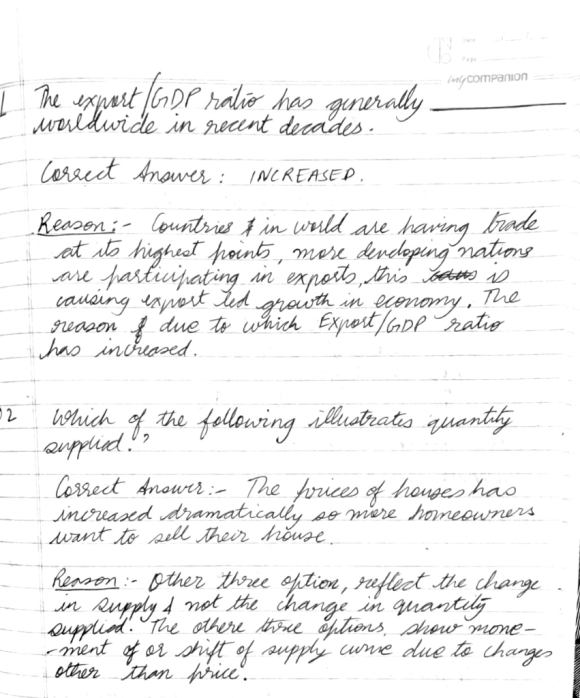 my companion
1 The export/GDP ratio has generally
worldwide in recent decades.
Correct Answer : INCREASED.
Reason :- Countries in world are having trade
at its highest points, more developing nations
are participating in exports, this is
causing export led growth in economy. The
reason due to which Export/GDP ratio
has increased.
02 Which of the following illustrates quantity
supplied.?
Correct Answer :- The prices of houses has
increased dramatically so more homeowners
want to sell their house.
Reason :- Other three option, reflect the change
in supply & not the change in quantity
supplied. The othere three options, show move-
-ment of or shift of supply curve due to changes
other than price.